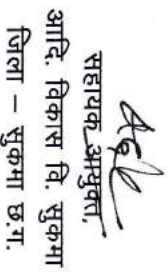 सहायक आयुक्त,
आदि. विकास वि. सुकमा
जिला – सुकमा छ.ग.